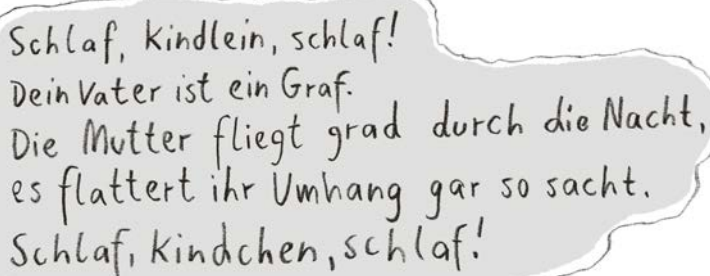 Schlaf, Kindlein, schlaf!
Dein Vater ist ein Graf.
Die Mutter fliegt grad durch die Nacht,
es flattert ihr Umhang gar so sacht.
Schlaf, Kindchen, schlaf!